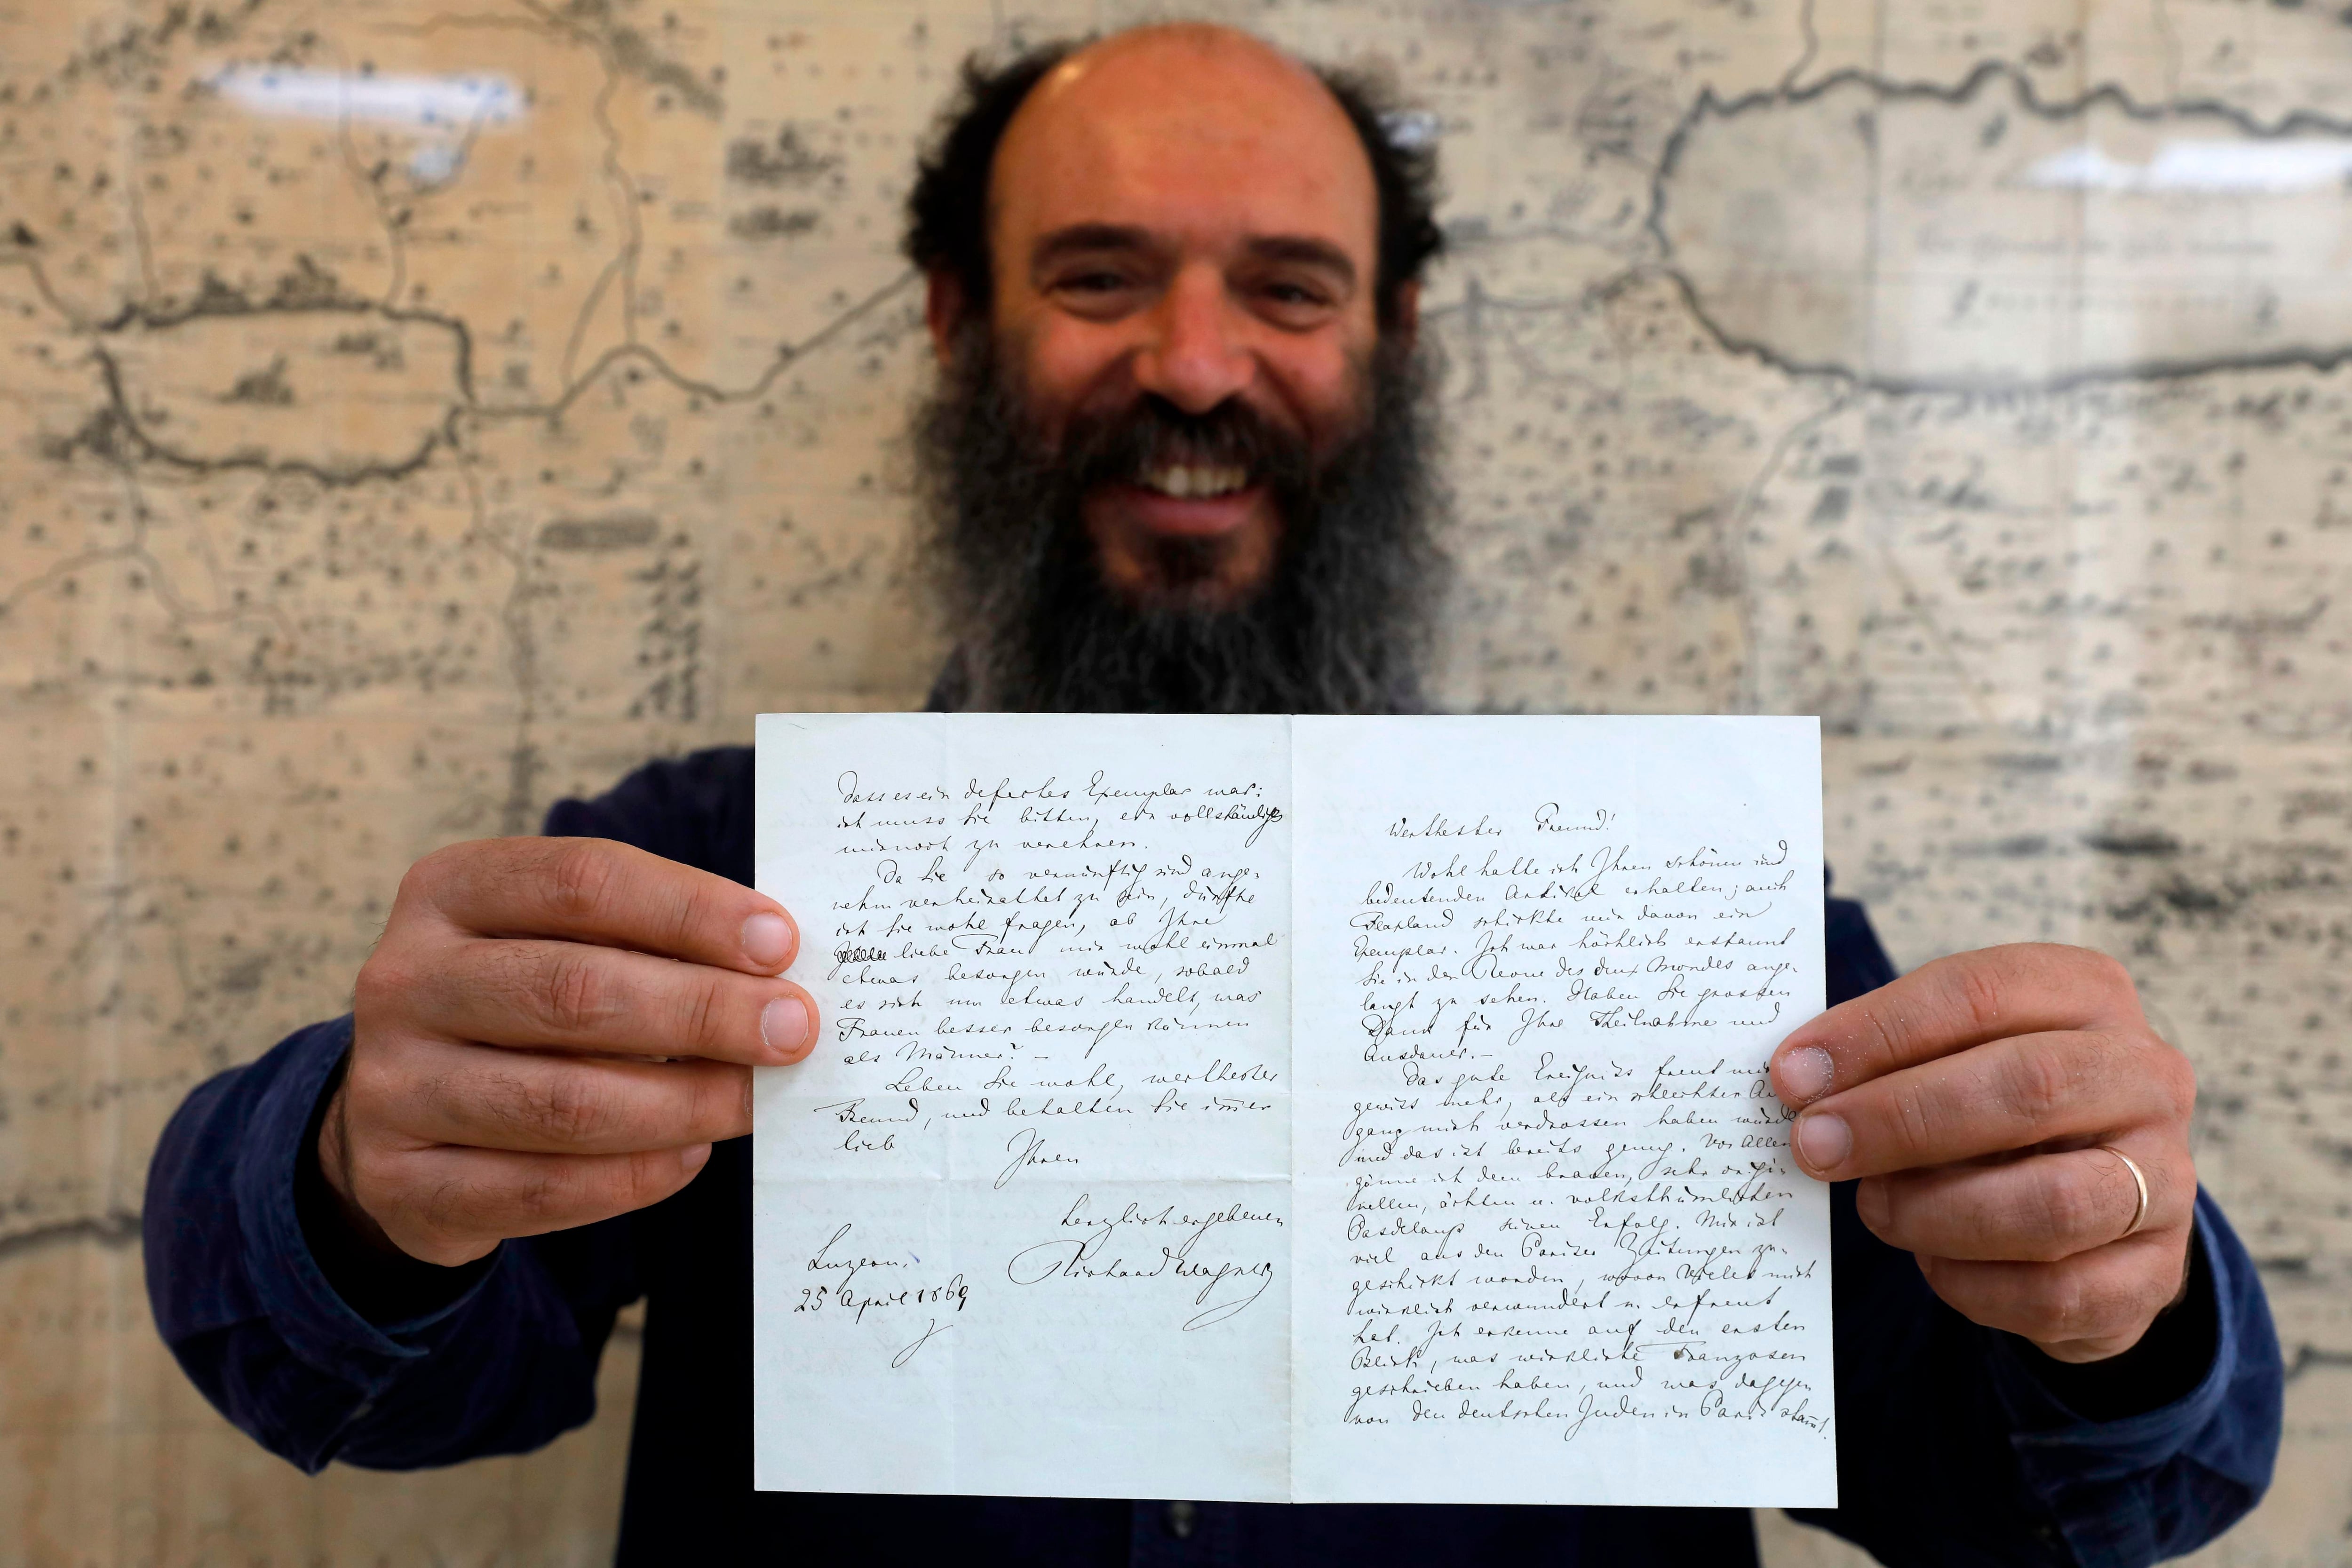 dass es ein defectes Exemplar war:
ich muss Sie bitten, ein vollständiges
mir noch zu verehren.
Da Sie so vernünftig sind ange-
nehm verheirathet zu sein, dürfte
ich Sie wohl fragen, ob Ihre
liebe Frau mir wohl einmal
etwas besorgen würde, sobald
es sich um etwas handelt, was
Frauen besser besorgen können
als Männer? –
Leben Sie wohl, werthester
Freund, und behalten Sie immer
lieb
Ihren
herzlich ergebenen
Richard Wagner
Luzern.
25 April 1869
Werthester Freund!
Wohl hatte ich Ihren schönen und
bedeutenden Artikel erhalten; auch
Flaxland schickte mir davon ein
Exemplar. Ich war höchlich erstaunt
Sie in der Revue des deux Mondes ange-
langt zu sehen. Haben Sie grossen
Dank für Ihre Theilnahme und
Ausdauer. –
Das gute Ereigniss freut mich
gewiss mehr, als ein schlechter Aus
gang mich verdrossen haben würde
und das ist bereits genug. Vor Allem
gönne ich dem braven, sehr origi-
nellen, ächten u. volksthümlichen
Pasdeloup seinen Erfolg. Mir ist
viel aus den Pariser Zeitungen zu-
geschickt worden, wovon Vieles mich
wirklich verwundert u. erfreut
hat. Ich erkenne auf den ersten
Blick, was wirkliche Franzosen
geschrieben haben, und was dagegen
von den deutschen Juden in Paris stammt.